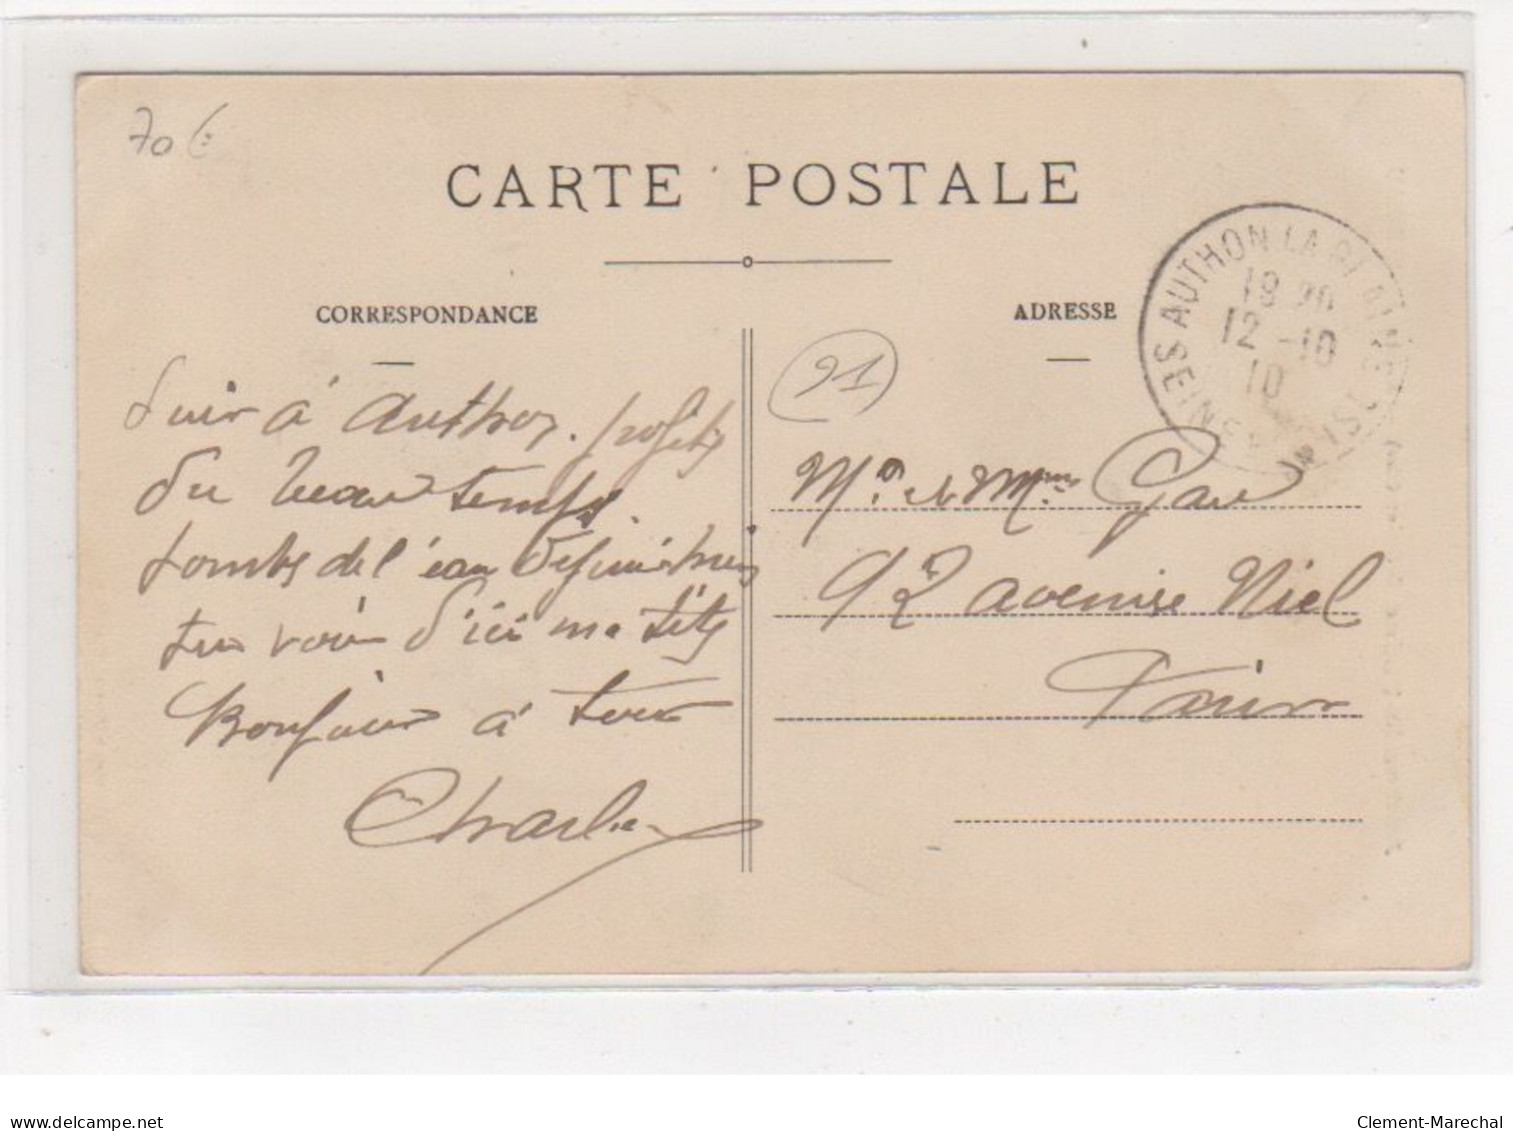 70 €
CARTE POSTALE
CORRESPONDANCE
ADRESSE
AUTHON LA PLAINE
18 20
12 -10
10
SEINE
91
Suis à Authon. profite
du beau temps.
tombe de l'eau
tu vois d'ici ma tête
Bonjour à tous
Charles
Mr et Mme
92 avenue Niel
Paris
www.delcampe.net
Clement-Marechal